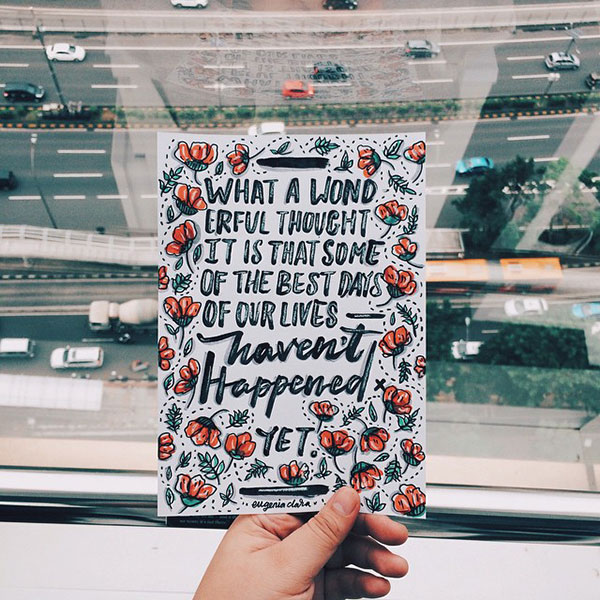 WHAT A WOND
ERFUL THOUGHT
IT IS THAT SOME
OF THE BEST DAYS
OF OUR LIVES
haven't
Happened
YET.
eugenia clara